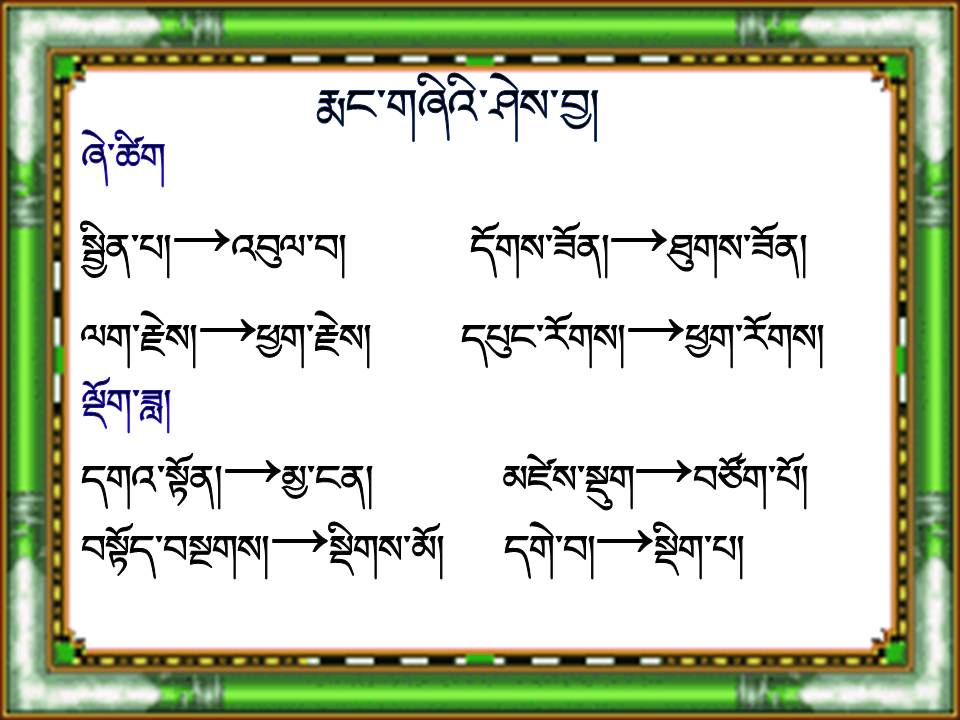 རྨང་གཞིའི་ཤེས་བྱ།
ཞེ་ཚིག
སྦྱིན་པ།→འབུལ་བ། དོགས་ཟོན།→ཐུགས་ཟོན།
ལག་རྗེས།→ཕྱག་རྗེས། དཔུང་རོགས།→ཕྱག་རོགས།
ལྡོག་ཟླ།
དགའ་སྟོན།→མྱ་ངན། མཛེས་སྡུག→བཙོག་པོ།
བསྟོད་བསྔགས།→སྡིགས་མོ། དགེ་བ།→སྡིག་པ།